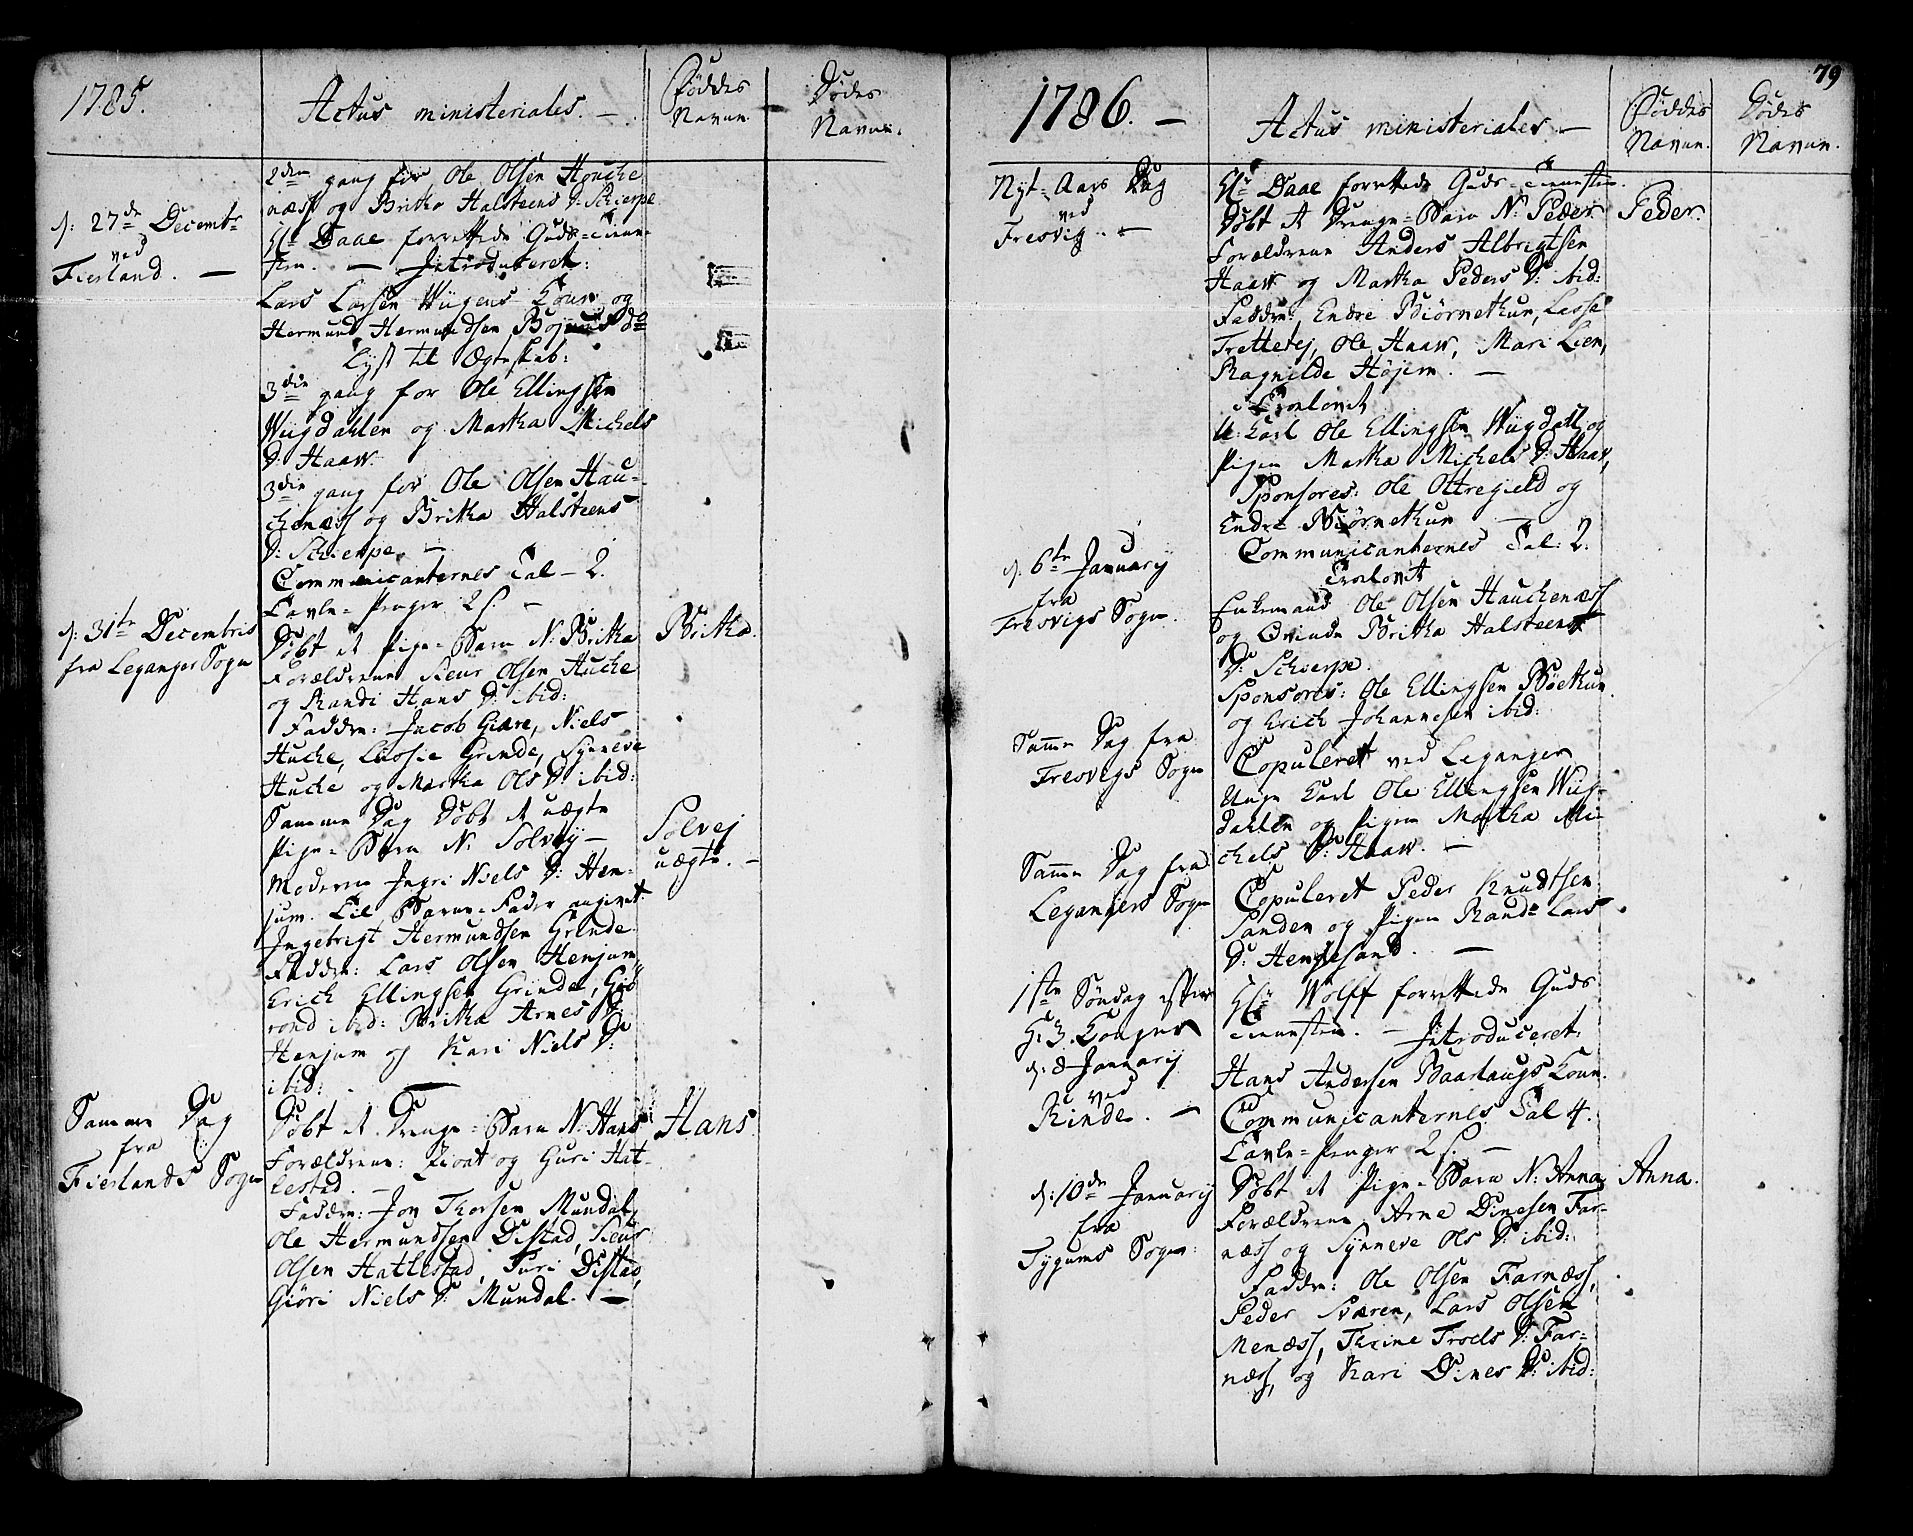 1785.
Actus ministeriales. —
Føddes
Navne.
Dødes
Navne.
2den gang for Ole Olsen Houche
næss og Britha Halsteens D: Schierpe
d: 27de Decembr
ved
Fierland. —
Hr Daae forrettede Guds-Tiene-
sten. — Introduceret:
Lars Larsen Wiigens Kone og
Hermund Hermundsen Bojums do
Lyst til Ægteskab:
3die gang for Ole Ellingsen
Wiigdahlen og Martha Michels
D: Haaw.
3die gang for Ole Olsen Hau-
chenæss og Britha Halsteens
D: Schierpe. —
Communicanternes Tal — 2.
Tavle-Penger 2 s. —
d: 31te Decembris
fra Leganger Sogn
Døbt et Pige-Barn N: Britha
Forældrene Sieur Olsen Huche
og Randi Hans D: ibid:
Faddre: Jacob Giære, Niels
Huche, Lassie Grinde, Synneve
Huche og Martha Ols D: ibid:
Britha.
Samme Dag Døbt et uægte
Pige-Barn N: Solvey —
Moderen Ingri Niels D: Hen-
jum. Til Barne-Fader angivet
Ingebrigt Hermundsen Grinde.
Faddre: Lars Olsen Henjum,
Erich Ellingsen Grinde, Gu-
rond ibid: Britha Arnes D:
Henjum og Kari Niels D:
ibid:
Solvej
uægte. —
Samme Dag
fra
Fierlands Sogn
Døbt et Drenge-Barn N: Hans
Forældrene: og Guri Hat-
lestad. —
Faddre: Jon Thorsen Mundal,
Ole Hermundsen Distad, Sieur
Olsen Hattlestad, Turi Distad,
Giøri Niels D: Mundal. —
Hans.
79
1786. —
Actus ministeriales —
Føddes
Navne.
Dødes
Navne.
Nyt-Aars Dag
ved
Fresvig. —
Hr Daae forrettede Guds-Tienesten.
Døbt et Drenge-Barn N: Peder
Forældrene Anders Albrigtsen
Haaw og Martha Peders D: ibid:
Faddre: Endre Biørnethun, Lasse
Trettetej, Ole Haaw, Mari Lien,
Ragnilde Højem. —
Peder.
Troelovet
U: Karl Ole Ellingsen Wiigdahl og
Pigen Martha Michels D: Haaw,
Sponsores: Ole Ottregield og
Endre Biørnethun —
Communicanternes Tal: 2.
d: 6te January
fra
Fresvigs Sogn.
Troelovet
Enkemand Ole Olsen Hauchenæss
og Qvinde Britha Halsteens
D: Schierpe.
Sponsores: Ole Ellingsen Bøethun
og Erich Johannesen ibid:
Samme Dag fra
Fresvigs Sogn
Copuleret ved Leganger
Unge Karl Ole Ellingsen Wiig-
dahlen og Pigen Martha Mi-
chels D: Haaw. —
Samme Dag fra
Legangers Sogn
Copuleret Peder Knudtsen
Sanden og Pigen Rande Lars
D: Hemgesand. —
1ste Søndag efter
H: 3. Konger
d: 8 January
ved
Rinde. —
Hr Wolff forrettede Guds
Tienesten. — Introduceret:
Hans Andersen Baarlaugs Kone.
Communicanternes Tal 4.
Tavle-Penger 2 s. —
d: 10de January
fra
Tygums Sogn:
Døbt et Pige-Barn N: Anna
Forældrene Arne Dinesen Far-
næss og Synneve Ols D: ibid:
Faddre: Ole Olsen Farnæss,
Peder Sværen, Lars Olsen
Menæss, Thrine Troels D: Far-
næss, og Kari Dines D: ibid:
Anna.